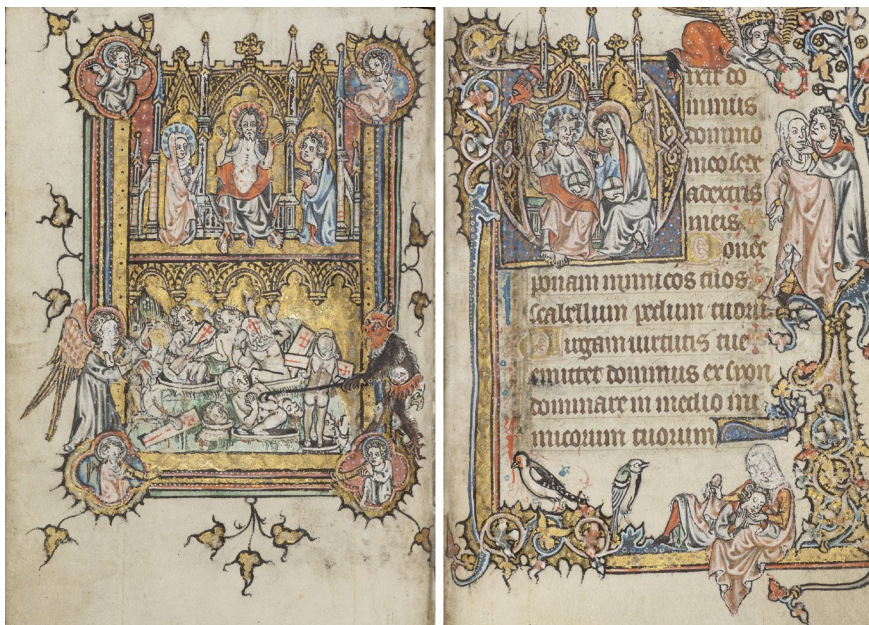 Dixit do
minus
domino
meo sede
adextris
meis
Donec
ponam inimicos tuos
scabellum pedum tuorum
Uirgam uirtutis tue
emittet dominus ex syon
dominare in medio ini
micorum tuorum